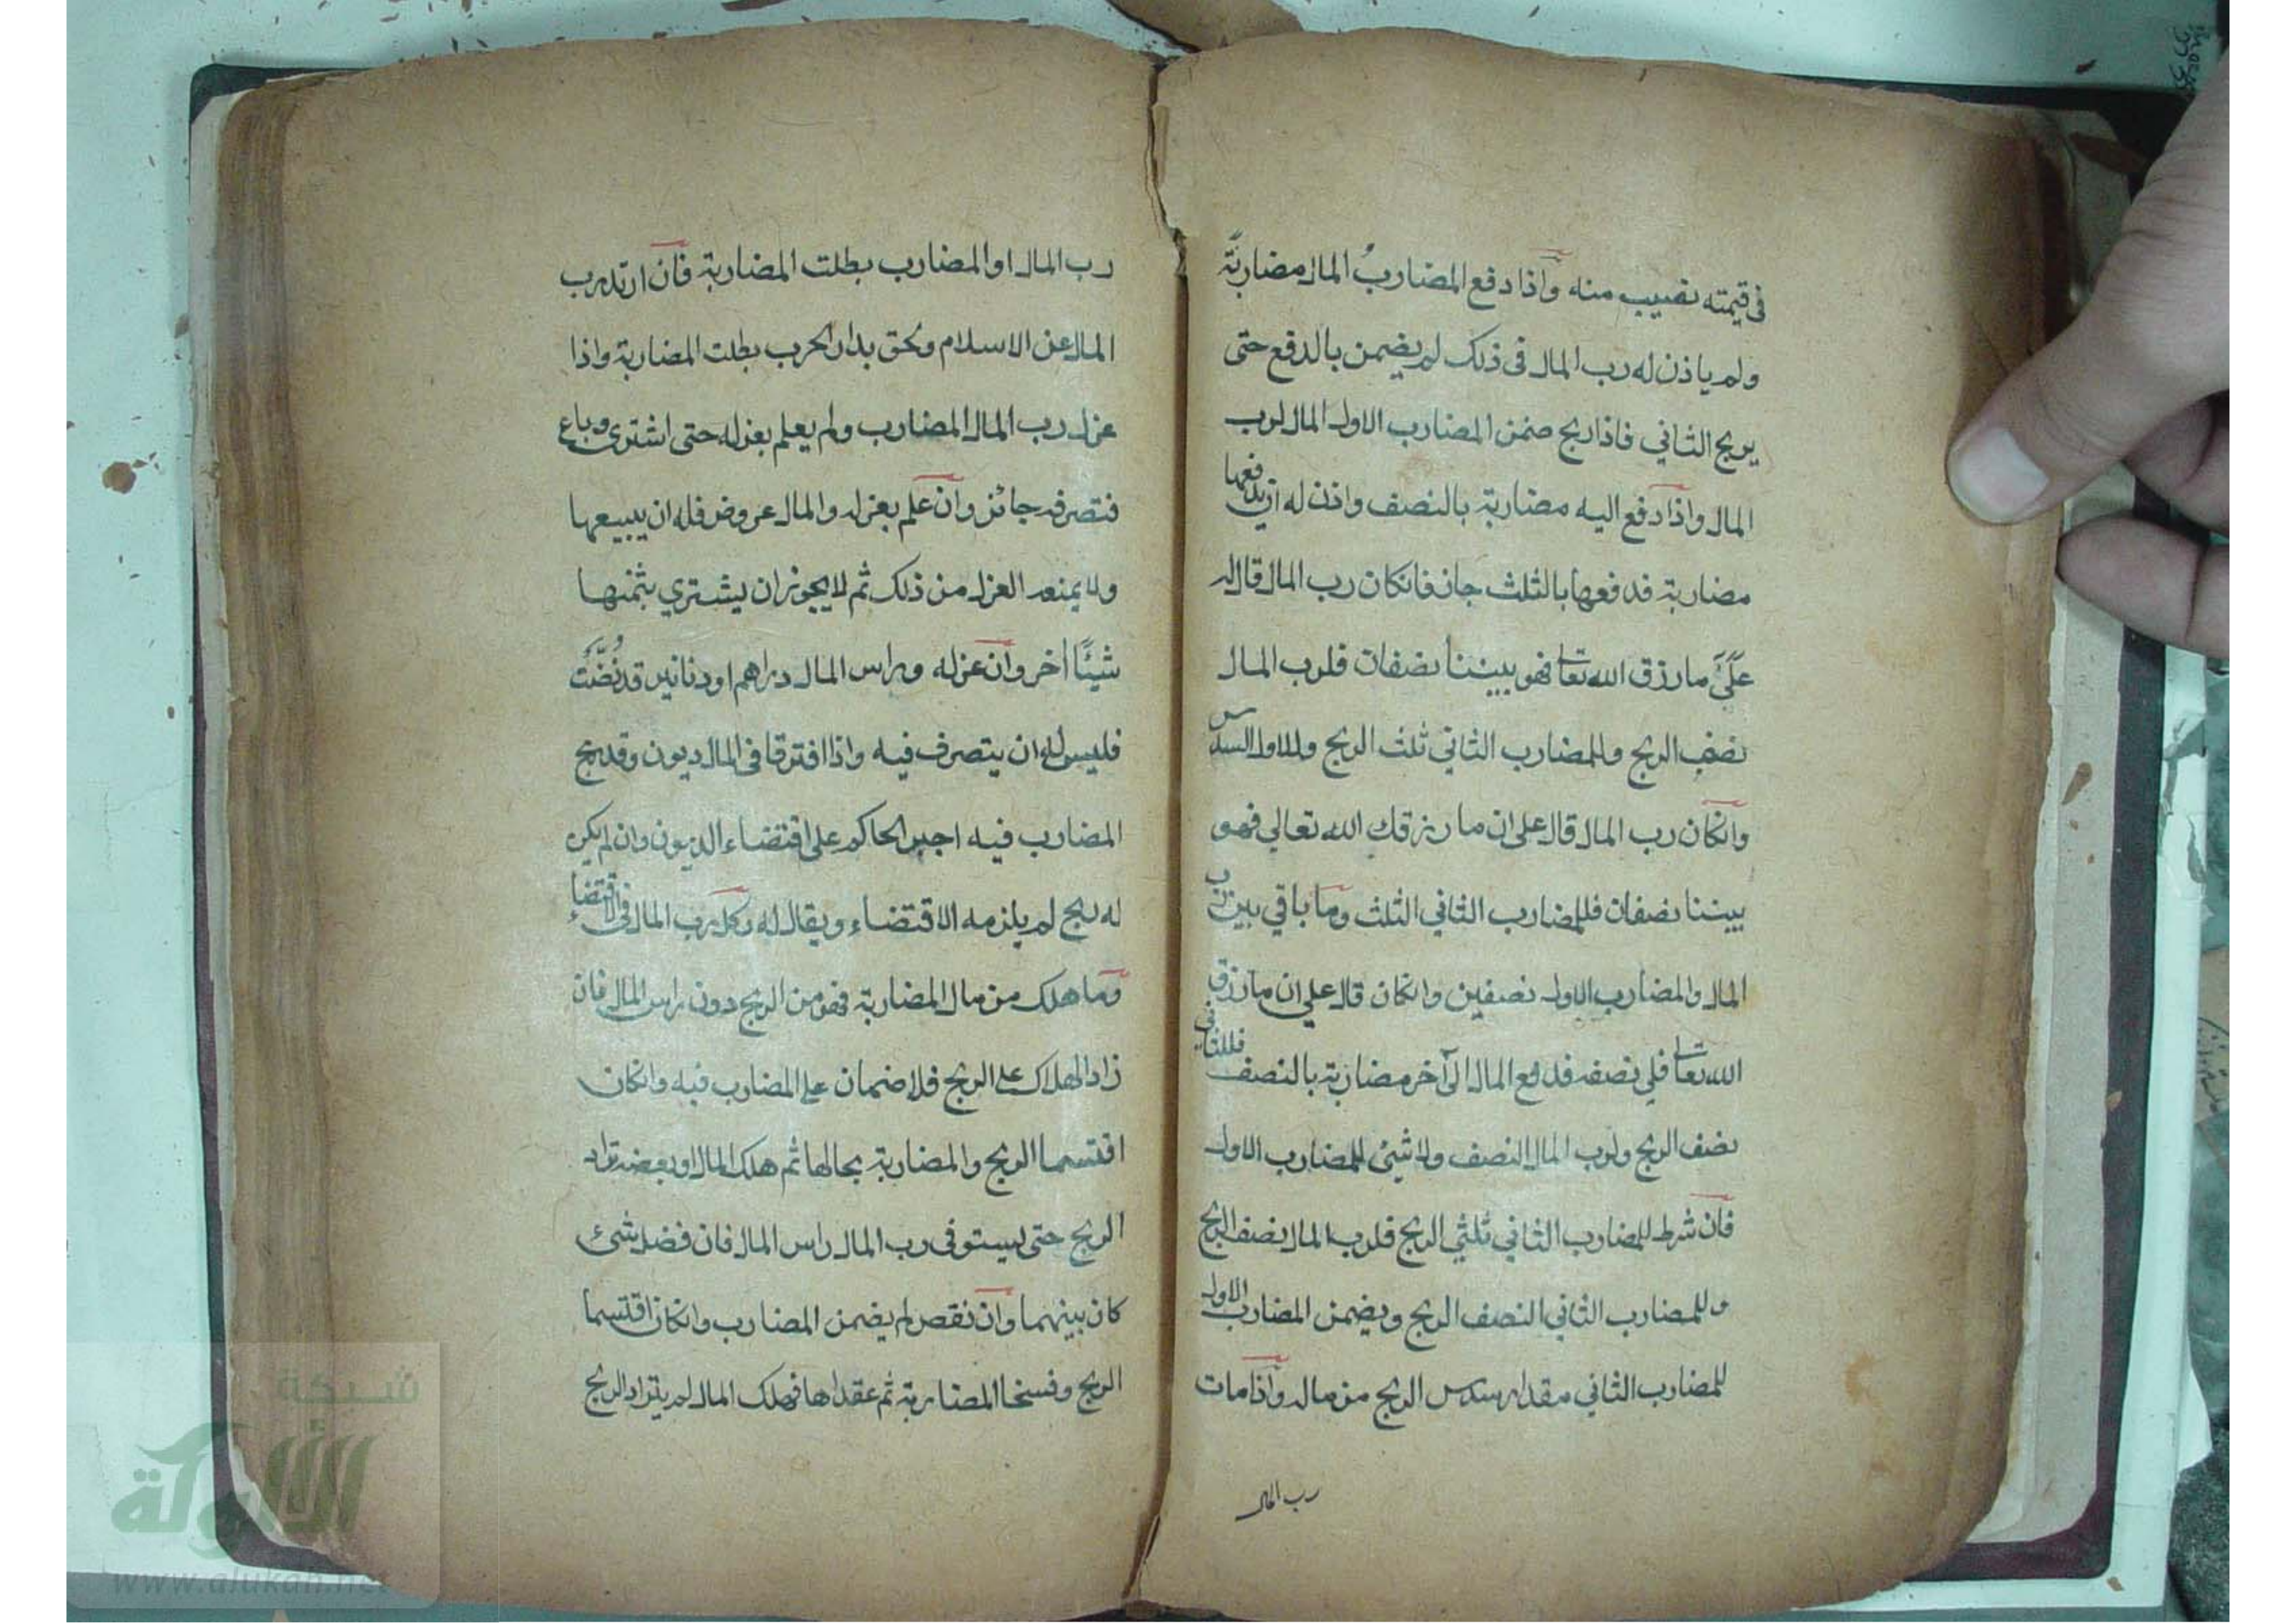 في قيمته نصيب منه واذا دفع المضاربُ المال مضاربةً
ولم ياذن له رب المال في ذلك لم يضمن بالدفع حتى
يربح الثاني فاذا ربح ضمن المضارب الاول المال لرب
المال واذا دفع اليه مضاربة بالنصف واذن له ان يدفعها
مضاربة فدفعها بالثلث جاز فانكان رب المال قال له
عَلَيَّ ما رزق الله تعا فهو بيننا نصفان فلرب المال
نصف الربح وللمضارب الثاني ثلث الربح وللاول السدس
وانكان رب المال قال على ان ما رزقك الله تعالي فهو
بيننا نصفان فللمضارب الثاني الثلث وما باقي بين رب
المال والمضارب الاول نصفين وانكان قال علي ان ما رزق
الله تعا فلي نصفه فدفع المال الى آخر مضاربة بالنصف فللثاني
نصف الربح ولرب المال النصف ولا شيئ للمضارب الاول
فان شرط للمضارب الثاني ثلثي الربح فلرب المال نصف الربح
وللمضارب الثاني النصف الربح ويضمن المضارب الاول
للمضارب الثاني مقدار سدس الربح من ماله واذا مات
رب المال
رب المال او المضارب بطلت المضاربة فان ارتد رب
المال عن الاسلام ولحق بدار الحرب بطلت المضاربة واذا
عزل رب المال المضارب ولم يعلم بعزله حتى اشترى وباع
فتصرفه جائز وان علم بعزله والمال عروض فله ان يبيعها
ولا يمنعه العزل من ذلك ثم لا يجوز ان يشتري بثمنها
شيئًا اخر وان عزله وراس المال دراهم او دنانير قد نُضَّتْ
فليس له ان يتصرف فيه واذا افترقا في المال ديون وقد ربح
المضارب فيه اجبر الحاكم على اقتضاء الديون وان لم يكن
له ربح لم يلزمه الاقتضاء ويقال له وكل رب المال في الاقتضاء
وما هلك من مال المضاربة فهو من الربح دون راس المال فان
زاد الهلاك على الربح فلا ضمان على المضارب فيه وانكان
اقتسما الربح والمضاربة بحالها ثم هلك المال او بعضه تراد
الربح حتى يستوفى رب المال راس المال فان فضل شئ
كان بينهما وان نقص لم يضمن المضارب وانكان اقتسما
الربح وفسخا المضاربة ثم عقداها فهلك المال لم يتراد الربح
شبكة
الألوكة
www.alukah.net